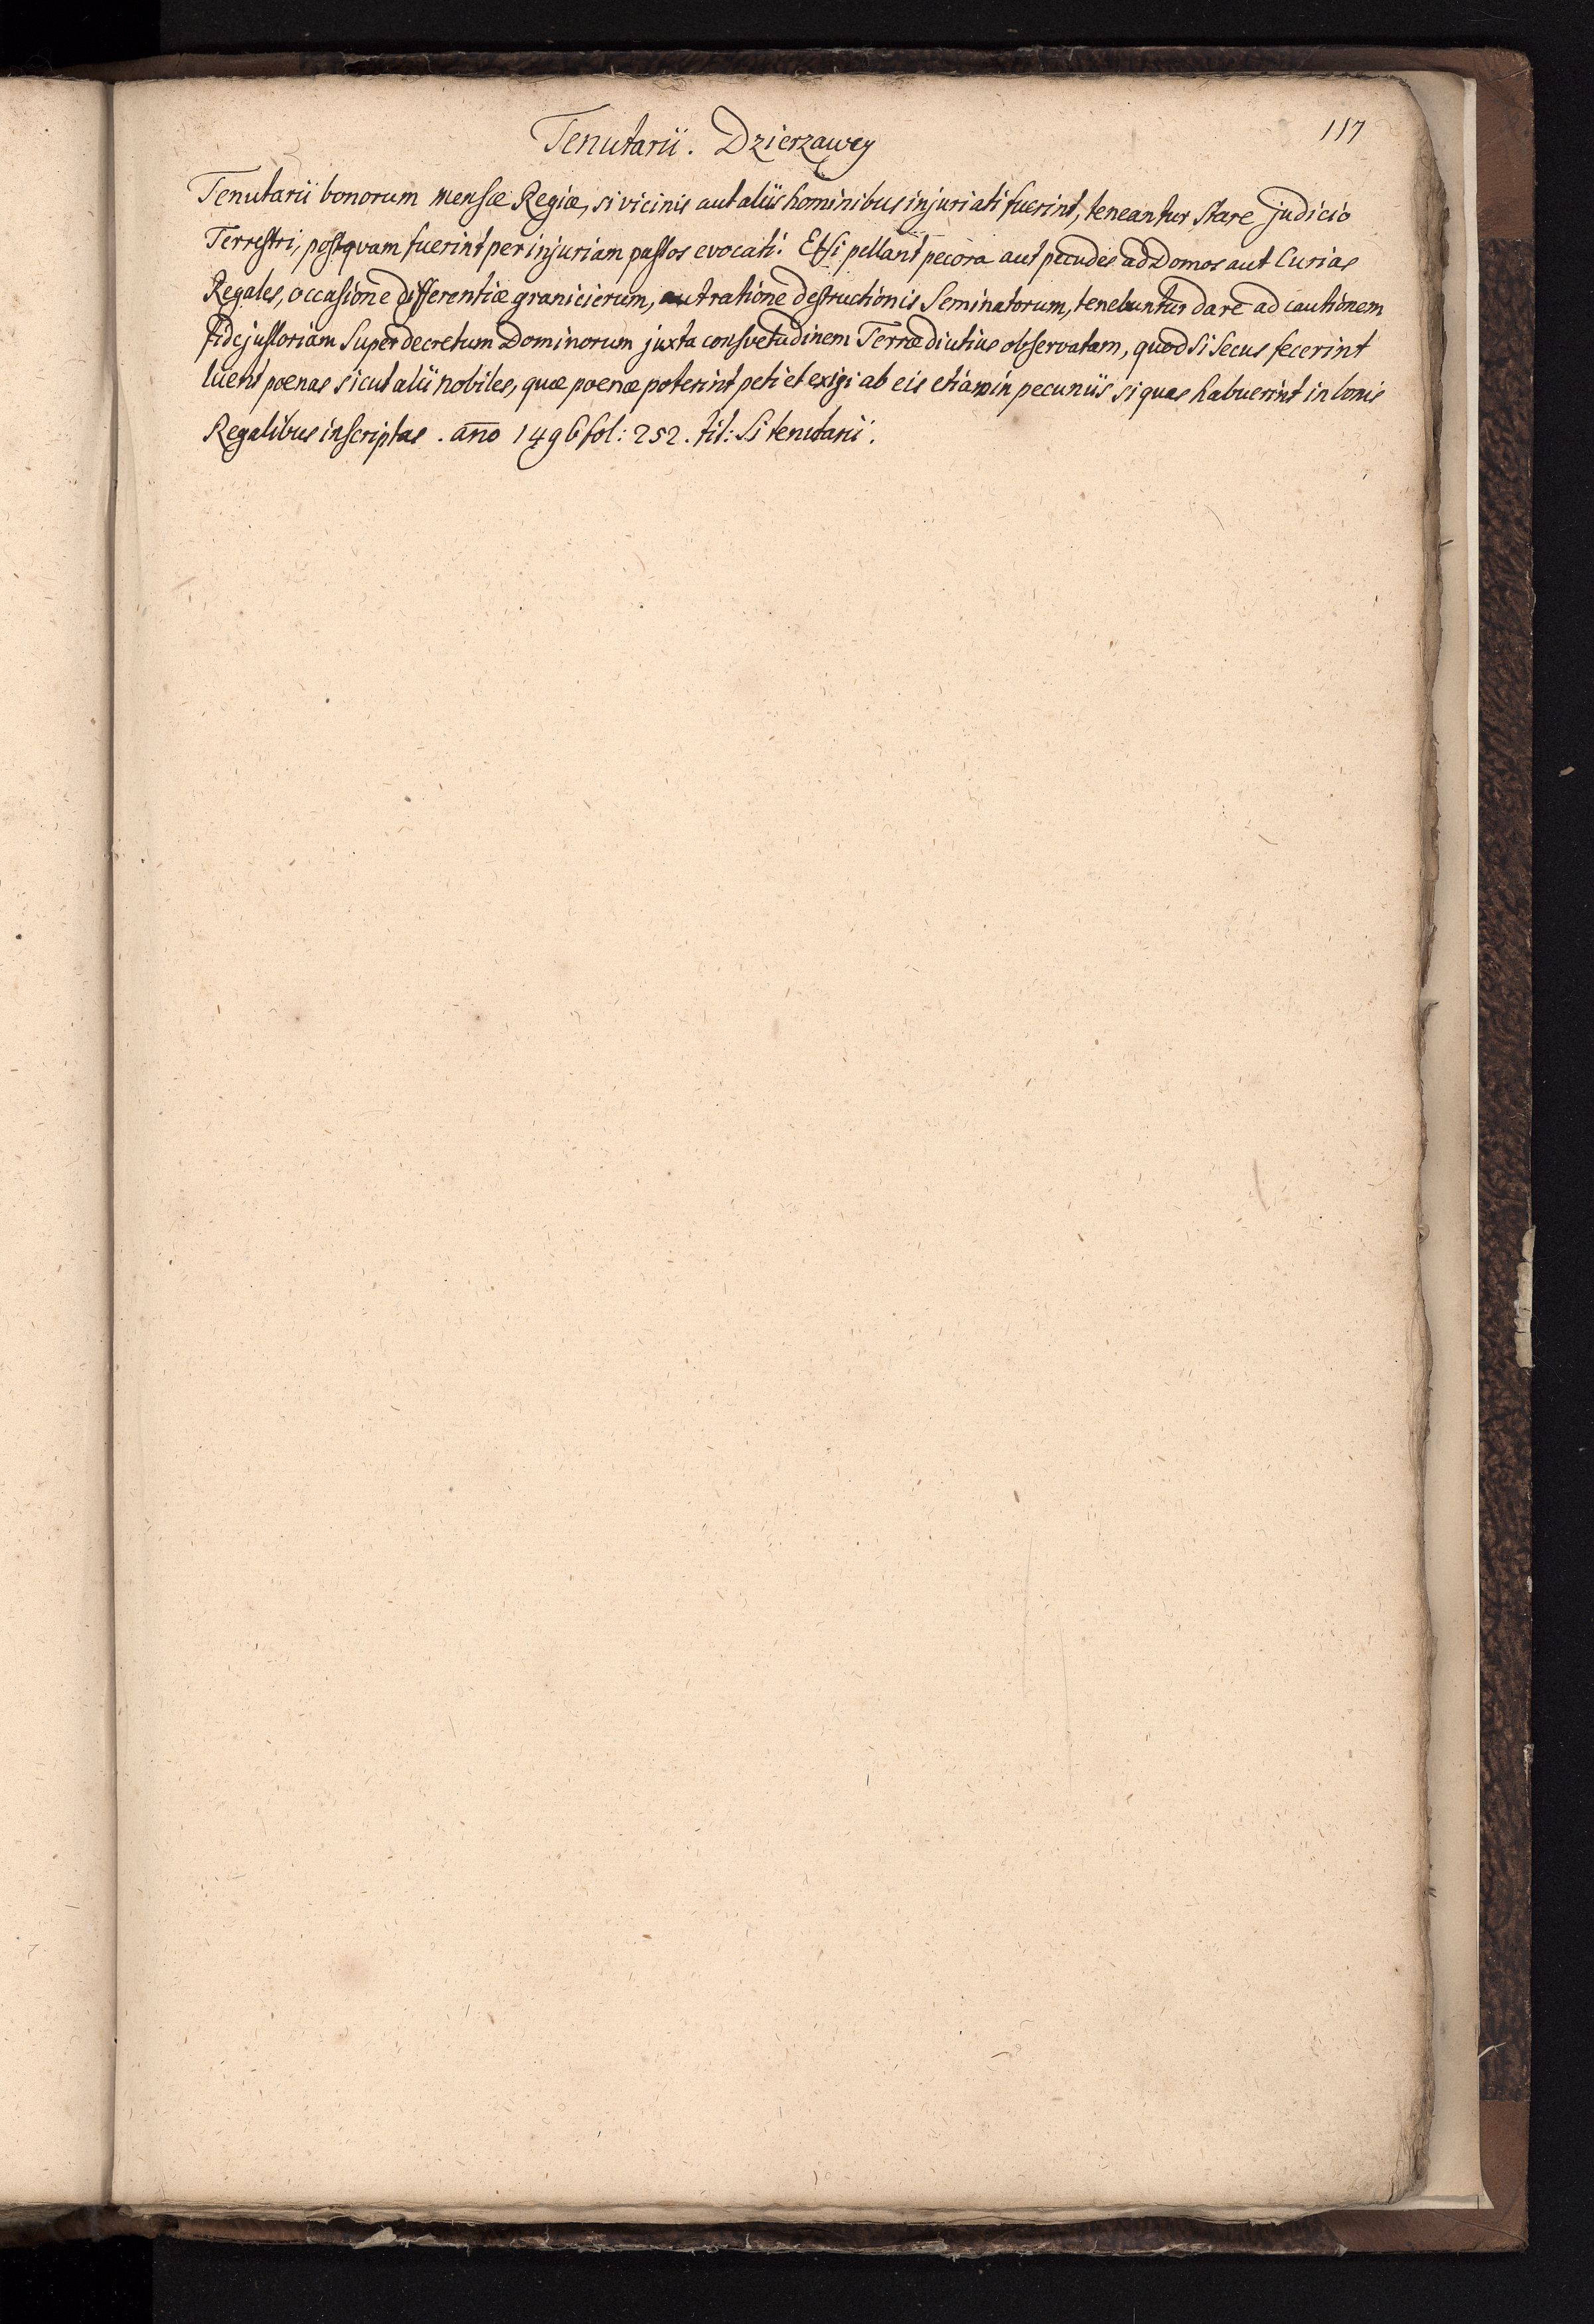 117
Tenutarii. Dzierzawcy
Tenutarii bonorum mensæ Regiæ, si vicinis aut aliis hominibus injuriati fuerint, teneantur stare judicio
Terrestri, postqvam fuerint per injuriam passos evocati. Et si pellant pecora aut pecudes ad Domos aut Curias
Regales, occasione differentiæ granicierum, aut ratione destructionis Seminatorum, tenebuntur dare ad cautionem
fidejussoriam Super decretum Dominorum juxta consvetudinem Terræ diutius observatam, quod si Secus fecerint
luent poenas sicut alii nobiles, quæ poenæ poterint peti et exigi ab eis etiam in pecuniis si quas habuerint in bonis
Regalibus inscriptas. año 1496 fol: 252. tit: Si tenutarii.